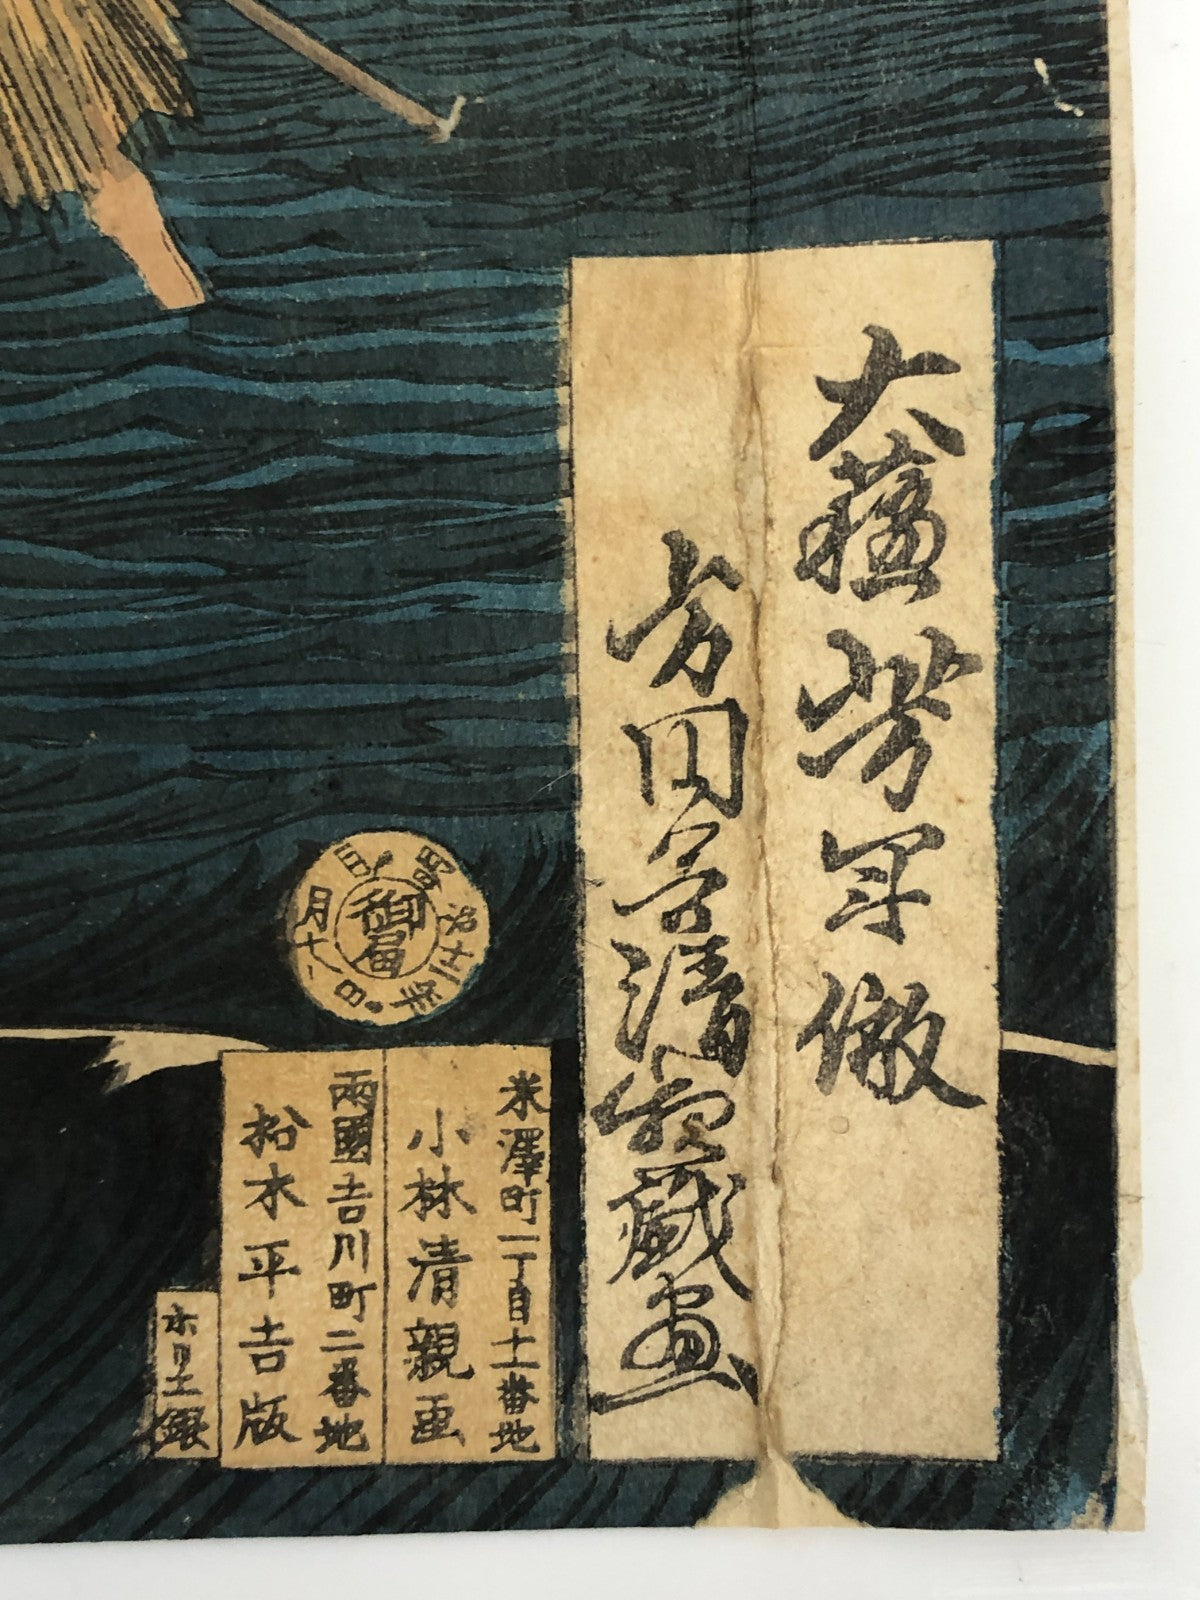 大蘇芳年倣
方円舎清親戯画
御届
明治十三年
月十八日
米澤町一丁目十一番地
小林清親画
兩國吉川町二番地
松木平吉版
銀